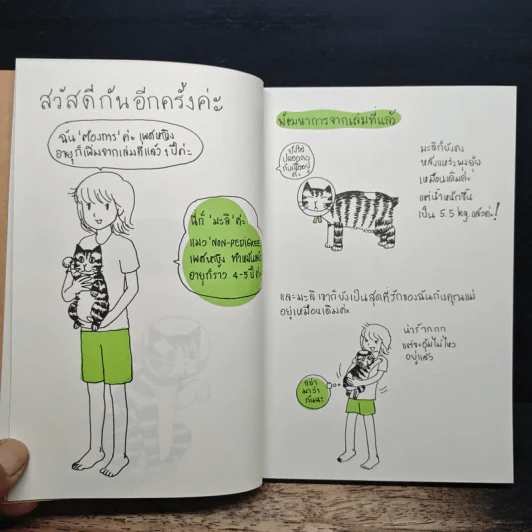 สวัสดีกันอีกครั้งค่ะ
ฉัน 'ต้องการ' ค่ะ เพศหญิง
อายุก็เพิ่มจากเล่มที่แล้ว 1 ปีค่ะ
นี่ก็ 'มะลิ' ค่ะ
แมว 'NON-PEDIGREE'
เพศหญิง ทำหมันแล้ว
อายุก็ราว 4-5 ปีค่ะ
พัฒนาการจากเล่มที่แล้ว
มะลิก็ยังคง
เหมือนเดิมค่ะ
แต่น้ำหนักขึ้น
เป็น 5.5 kg. แล้วค่ะ!
และมะลิ เขาก็ยังเป็นสุดที่รักของฉันกับคุณแม่
อยู่เหมือนเดิมค่ะ
น่าร้ากกก
แต่จะอุ้มไม่ไหว
อยู่แล้ว
อย่า
มาว่า
กันนะ